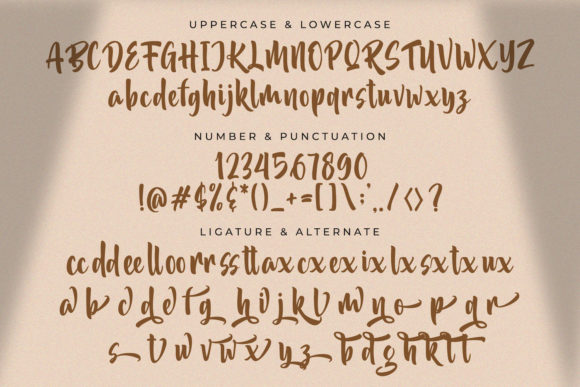 UPPERCASE & LOWERCASE
ABCDEFGHIJKLMNOPQRSTUVWXYZ
abcdefghijklmnopqrstuvwxyz
NUMBER & PUNCTUATION
1234567890
!@#$%¢*()_+=[]\:;,./<>?
LIGATURE & ALTERNATE
cc dd ee ll oo rr ss tt ax cx ex ix lx sx tx ux
a b c d e f g h i j k l m n o p q r
s t u v w x y z bdghktt